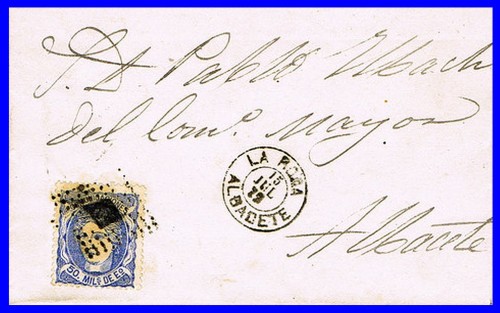 S. D. Pablo
del Com.º Mayor
Albacete
LA RODA
15
JUL
ALBACETE
50. MILS DE Eo.